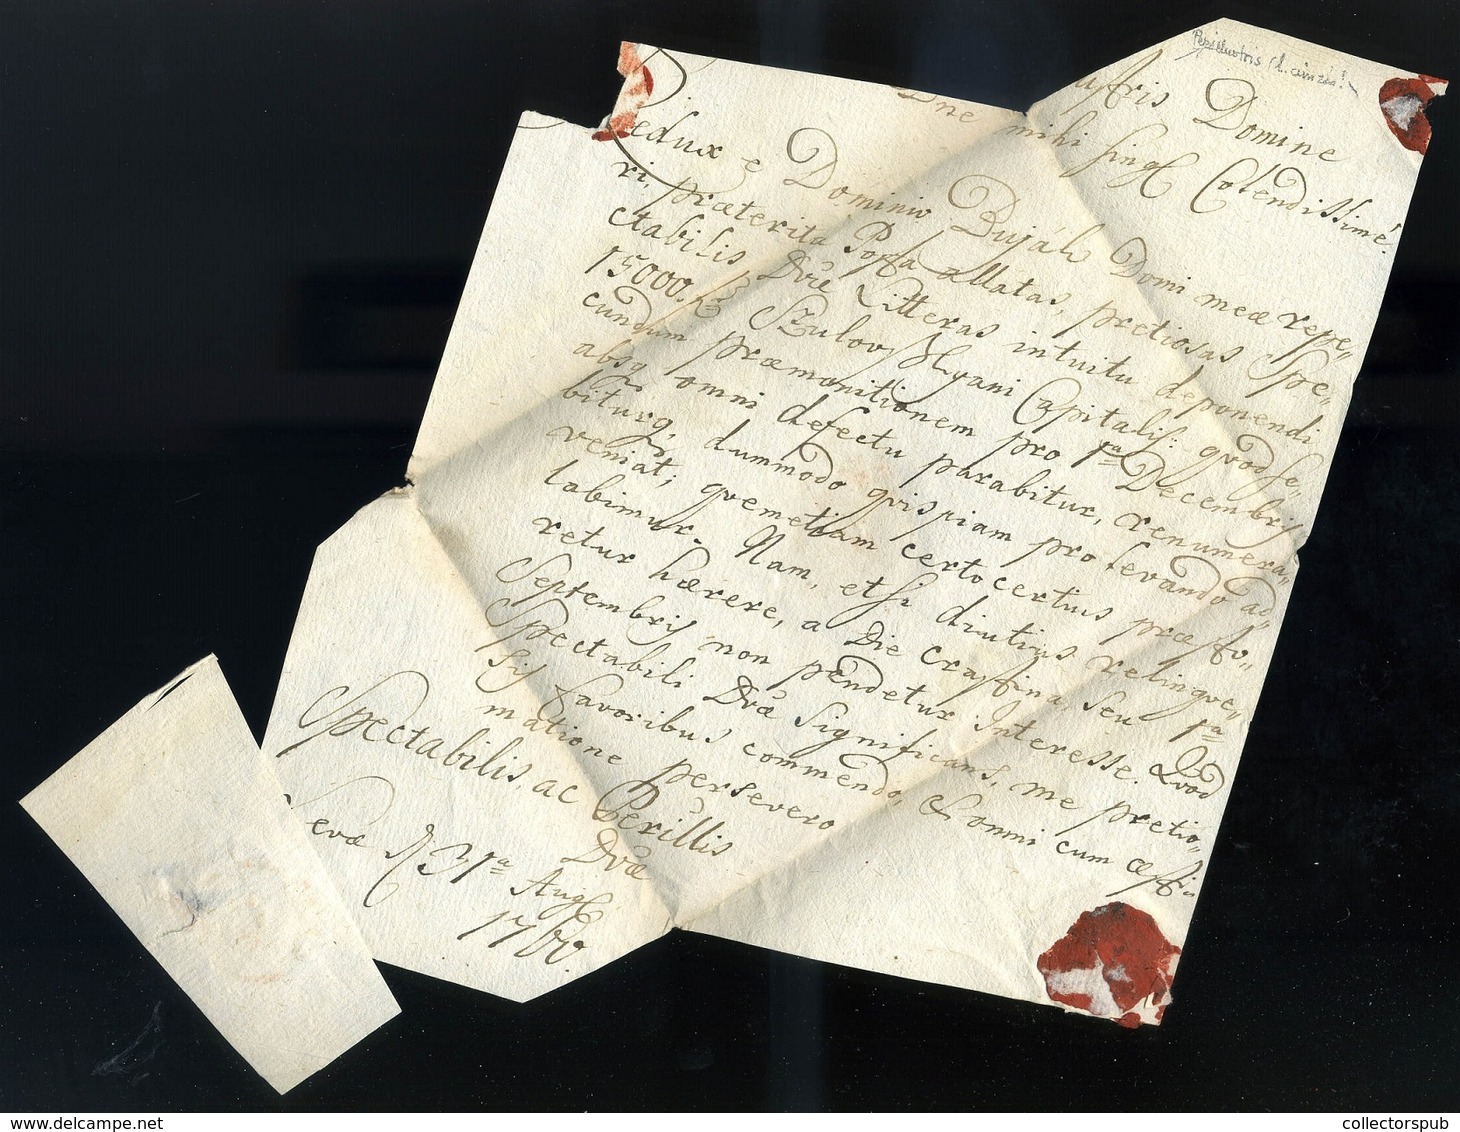 Perillustris (l. címzés!
ustris Domine
Dne mihi singl Colendissime!
Redux e Dominio Buják Domi meæ repe=
ri, præterita Posta allatas, pretiosas Spe=
ctabilis Dvæ Litteras intuitu deponendi
15000. Szulovs Hyani Capitalis: qvod se=
cundum præmonitionem pro 1ma Decembris
absq omni defectu parabitur, renumera=
biturq, dummodo qvispiam pro levando ad=
veniat; qvemetiam certocertius præsto=
labimur. Nam, etsi diutius relinqve=
retur hærere, a Die crastina, seu 1ma
Septembris non pendetur Interesse. Qvod
Spectabili Dvæ significans, me pretio=
sis Favoribus commendo, & omni cum æsti=
matione persevero
Spectabilis, ac Perillis
Dvæ
evæ 31ma Augl
collectorspub